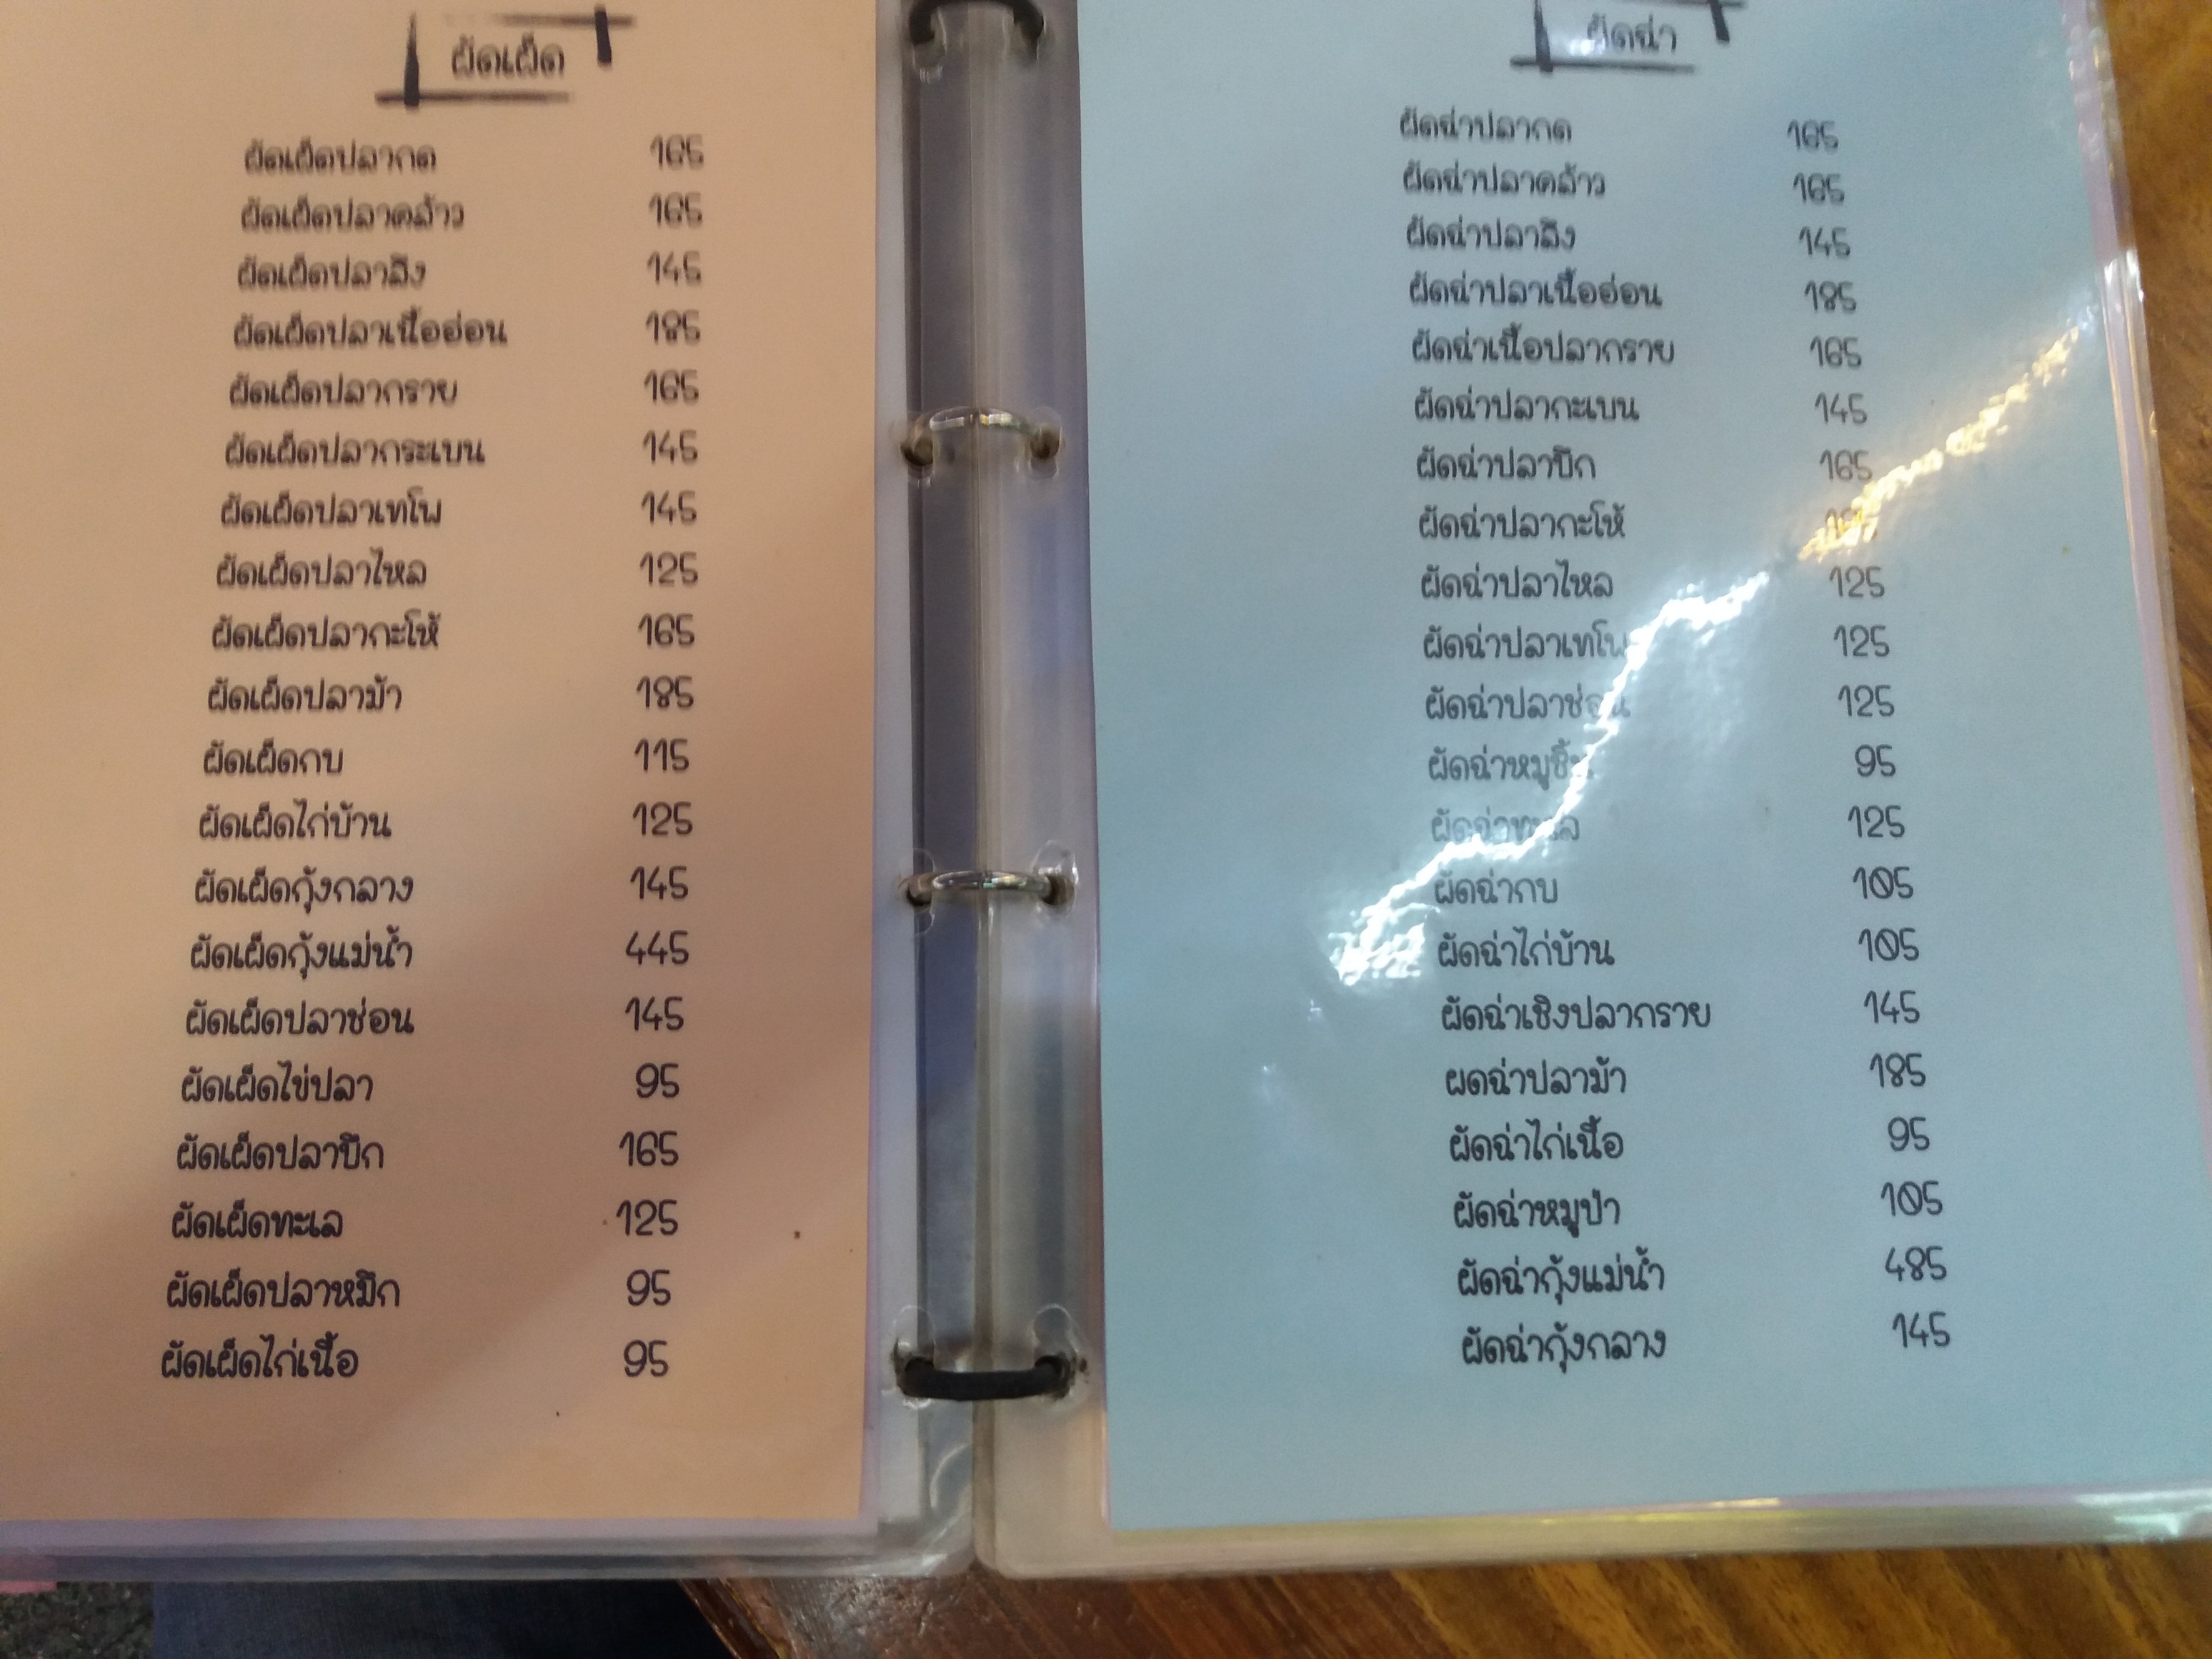 ผัดเผ็ด
ผัดเผ็ดปลากด 165
ผัดเผ็ดปลาคล้าว 165
ผัดเผ็ดปลาลิง 145
ผัดเผ็ดปลาเนื้ออ่อน 185
ผัดเผ็ดปลากราย 165
ผัดเผ็ดปลากระเบน 145
ผัดเผ็ดปลาเทโพ 145
ผัดเผ็ดปลาไหล 125
ผัดเผ็ดปลากะโห้ 165
ผัดเผ็ดปลาม้า 185
ผัดเผ็ดกบ 115
ผัดเผ็ดไก่บ้าน 125
ผัดเผ็ดกุ้งกลาง 145
ผัดเผ็ดกุ้งแม่น้ำ 445
ผัดเผ็ดปลาช่อน 145
ผัดเผ็ดไข่ปลา 95
ผัดเผ็ดปลาบึก 165
ผัดเผ็ดทะเล 125
ผัดเผ็ดปลาหมึก 95
ผัดเผ็ดไก่เนื้อ 95
ผัดฉ่า
ผัดฉ่าปลากด 165
ผัดฉ่าปลาคล้าว 165
ผัดฉ่าปลาลิง 145
ผัดฉ่าปลาเนื้ออ่อน 185
ผัดฉ่าเนื้อปลากราย 165
ผัดฉ่าปลากะเบน 145
ผัดฉ่าปลาบึก 165
ผัดฉ่าปลากะโห้
ผัดฉ่าปลาไหล 125
ผัดฉ่าปลาเทโพ 125
ผัดฉ่าปลาช่อน 125
ผัดฉ่าหมูชิ้น 95
ผัดฉ่าทะเล 125
ผัดฉ่ากบ 105
ผัดฉ่าไก่บ้าน 105
ผัดฉ่าเชิงปลากราย 145
ผดฉ่าปลาม้า 185
ผัดฉ่าไก่เนื้อ 95
ผัดฉ่าหมูป่า 105
ผัดฉ่ากุ้งแม่น้ำ 485
ผัดฉ่ากุ้งกลาง 145